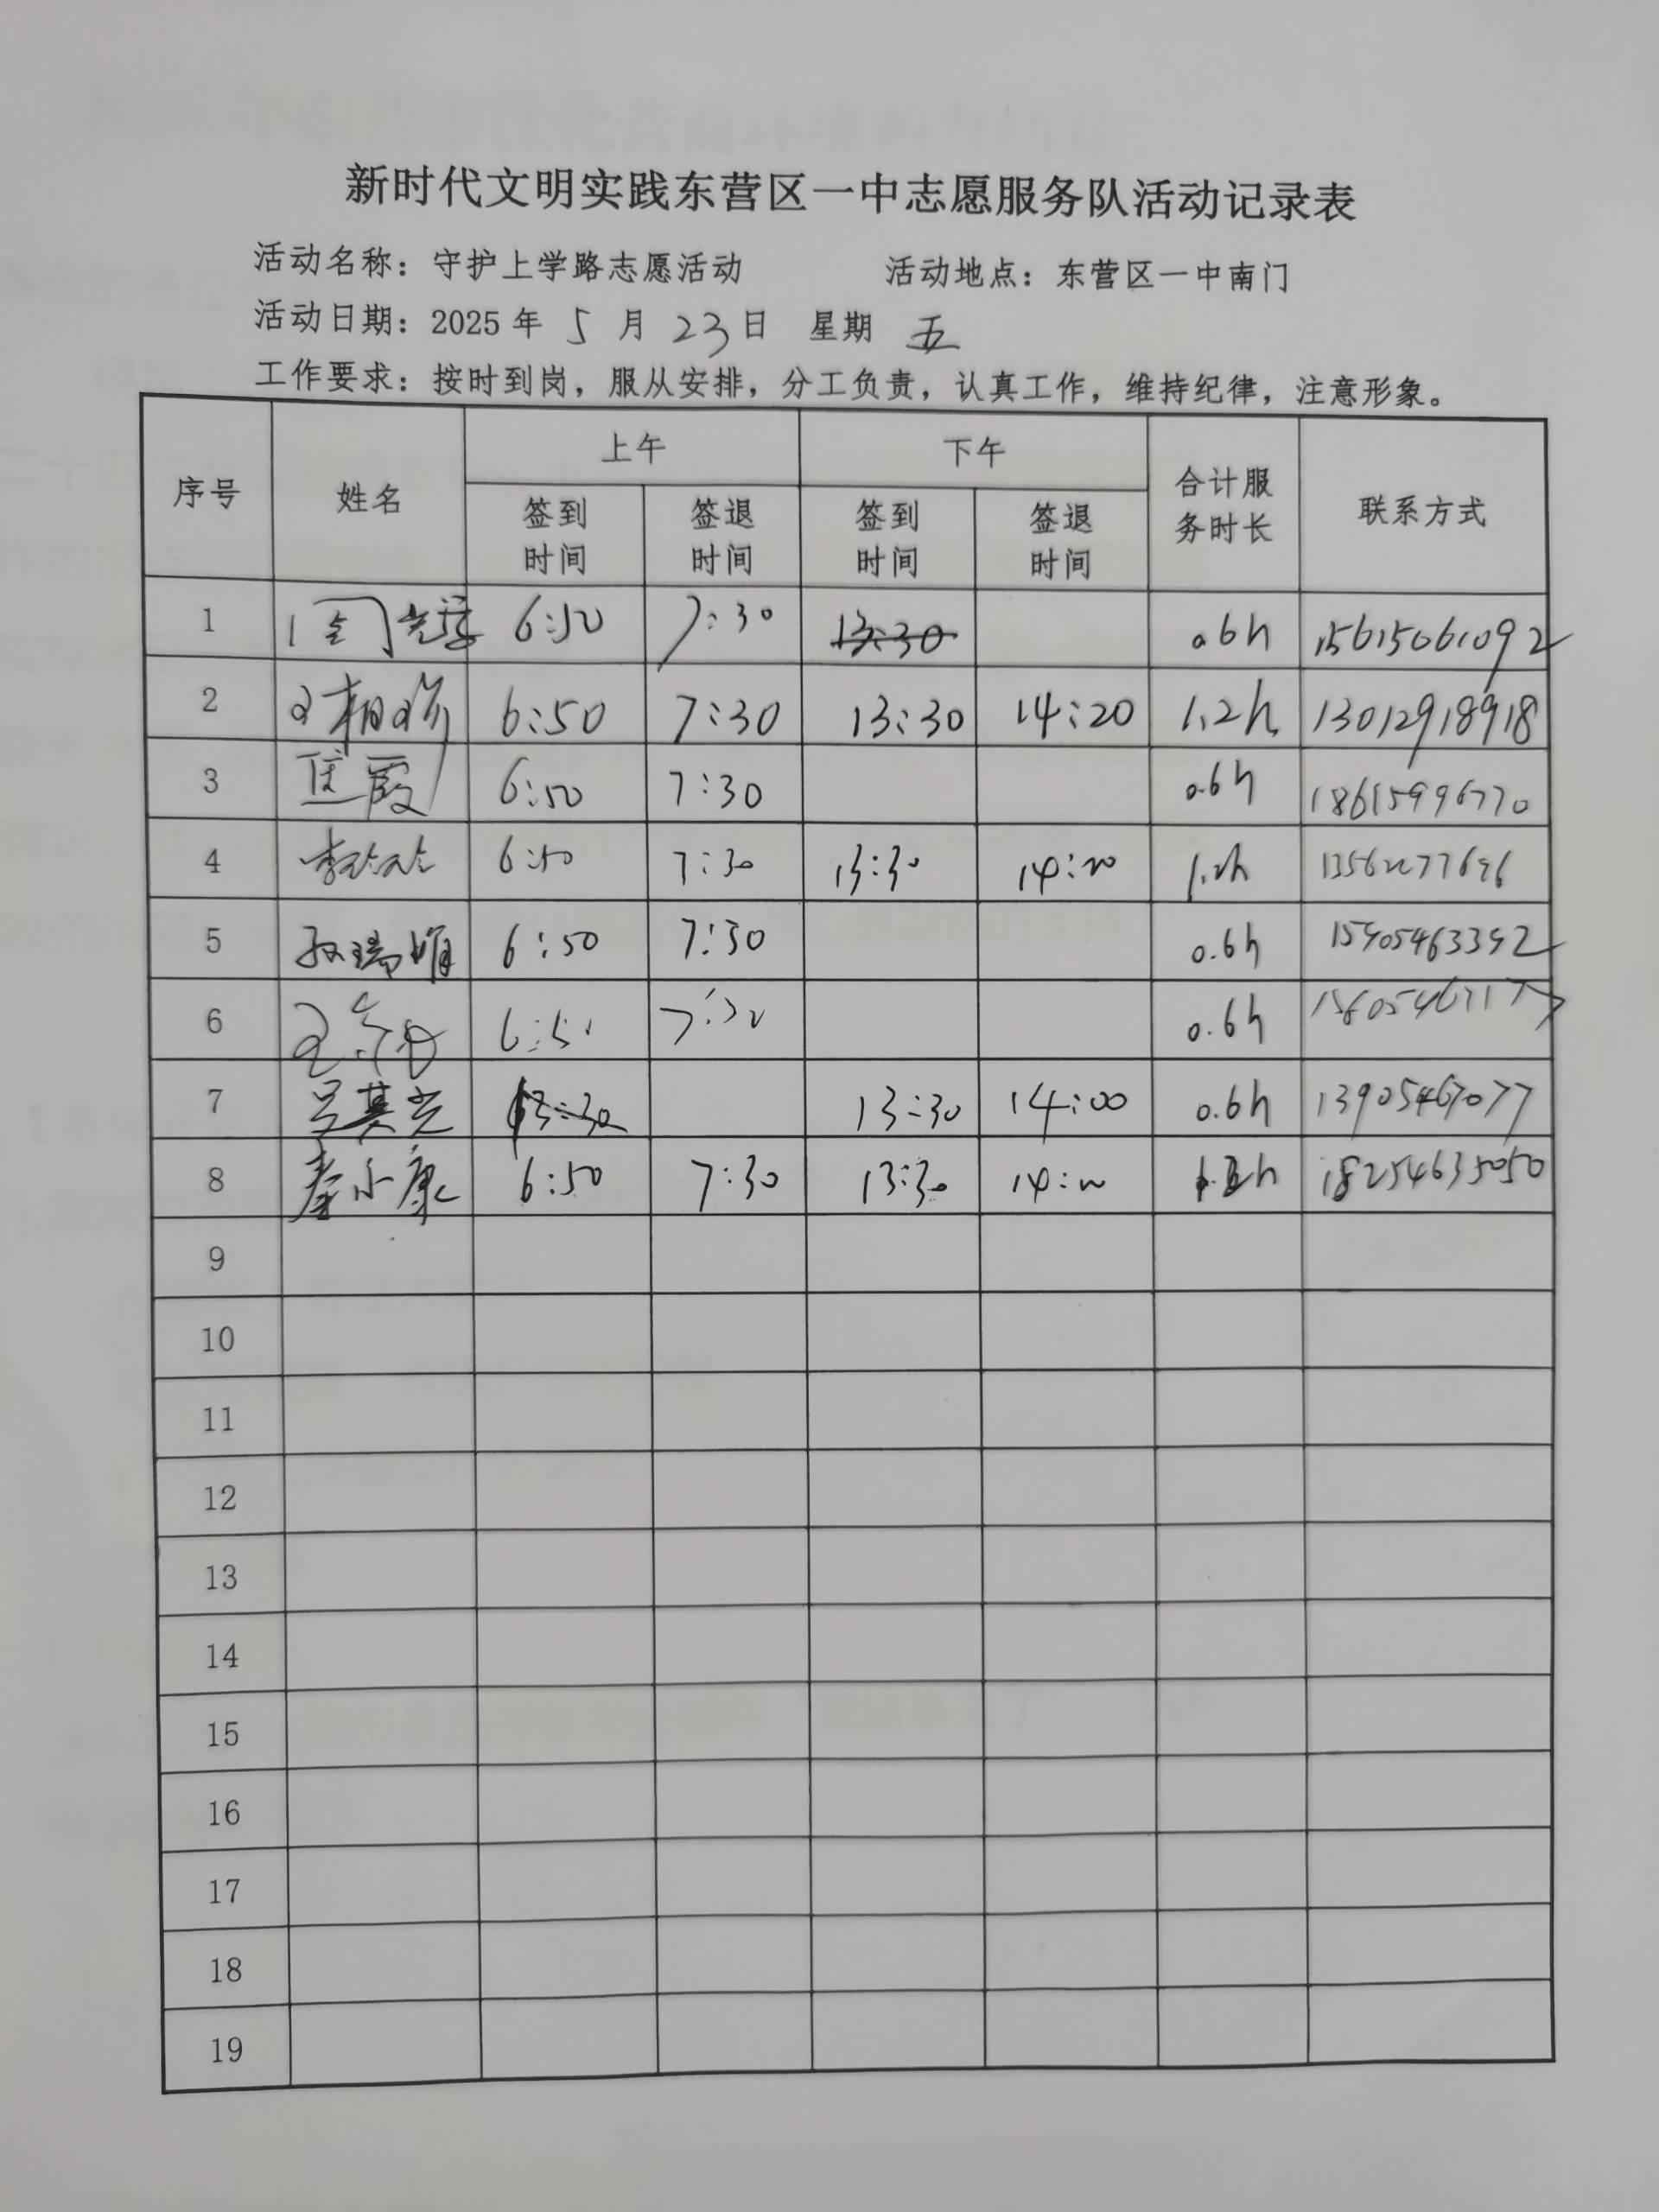 新时代文明实践东营区一中志愿服务队活动记录表
活动名称：守护上学路志愿活动 活动地点：东营区一中南门
活动日期：2025 年 5 月 23 日 星期 五
工作要求：按时到岗，服从安排，分工负责，认真工作，维持纪律，注意形象。
序号 姓名 上午 下午 合计服务时长 联系方式
签到时间 签退时间 签到时间 签退时间
1 6:50 7:30 13:30 0.6h 15615061092
2 6:50 7:30 13:30 14:20 1.2h 13012918918
3 霞 6:50 7:30 0.6h 18615996770
4 李玲玲 6:50 7:30 13:30 14:20 1.2h
5 孙瑞娟 6:50 7:30 0.6h
6 王 6:50 7:30 0.6h
7 吕其光 13:30 13:30 14:00 0.6h 13905467077
8 秦小康 6:50 7:30 13:30 14:20 h 18254635050
9
10
11
12
13
14
15
16
17
18
19